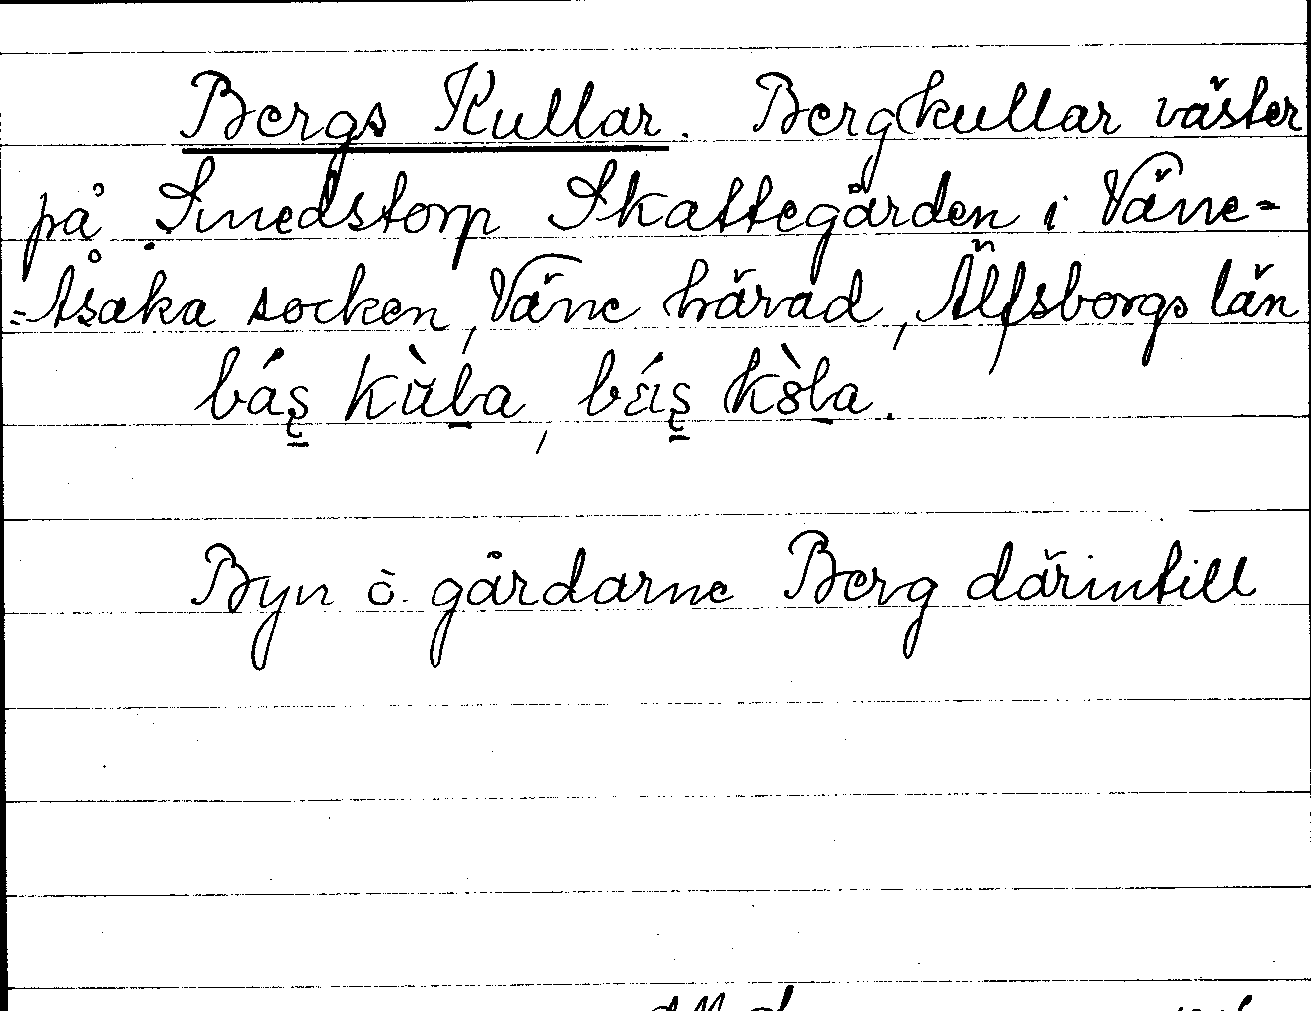 Bergs Kullar. Bergkullar väster
på Smedstorp Skattegården i Väne=
=Åsaka socken, Väne härad, Älfsborgs län
Byn o. gårdarne Berg därintill